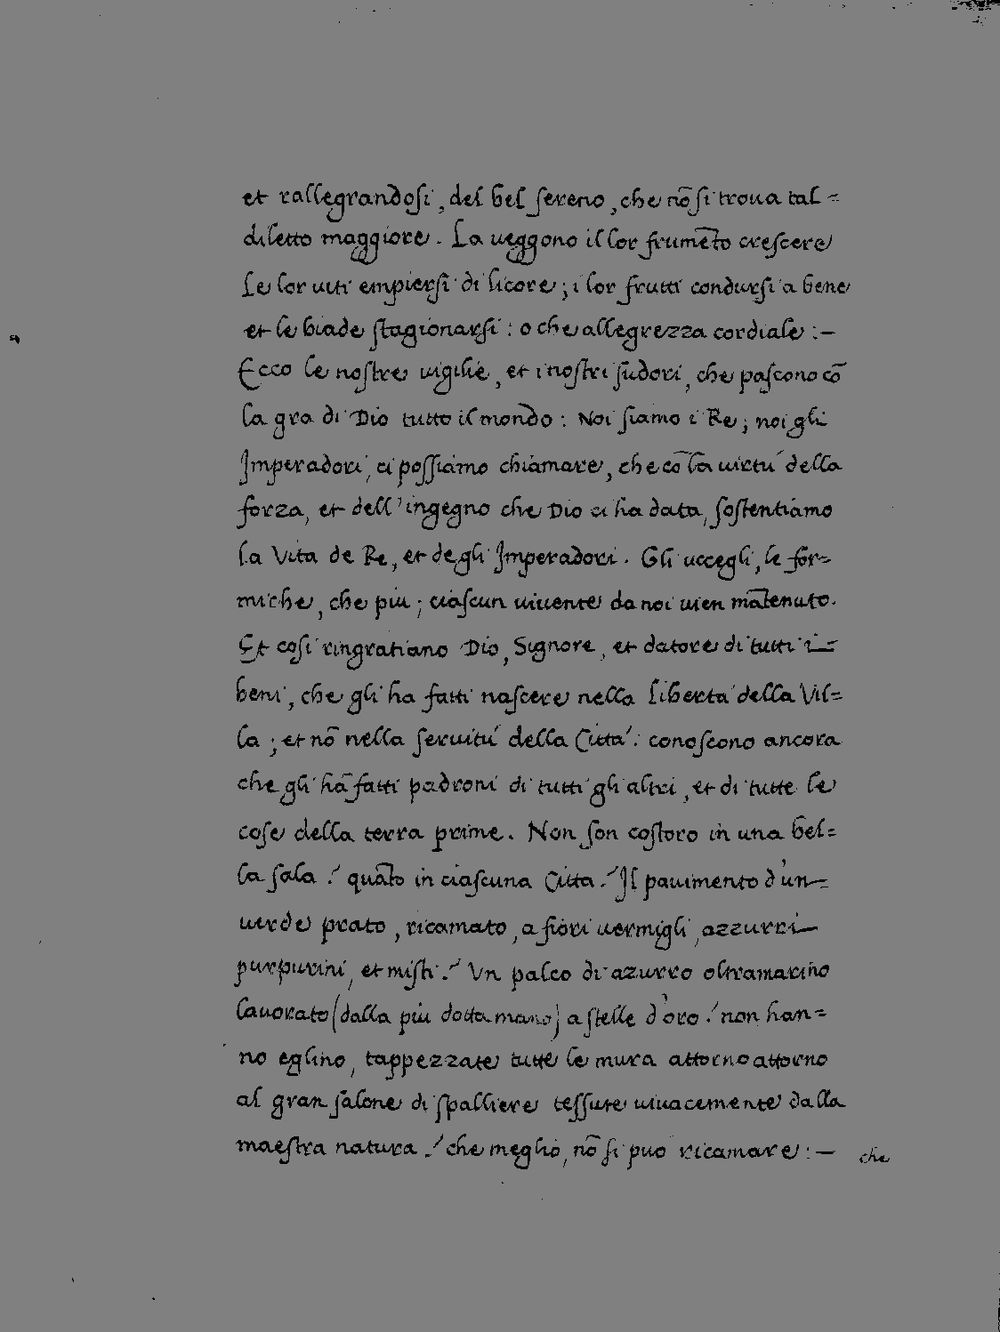 et rallegrandosi, del bel sereno, che nõ si troua tal =
diletto maggiore. La ueggono il lor frumẽto crescere
Le lor uiti empiersi di licore; i lor frutti condursi a bene
et le biade stagionarsi: o che allegrezza cordiale :—
Ecco le nostre uigilie, et i nostri sudori, che pascono cõ
la gra di Dio tutto il mondo: Noi siamo i Re; noi gli
Imperadori, ci possiamo chiamare, che cõ la uirtu' della
forza, et dell'ingegno che Dio ci ha data, sostentiamo
la Vita de Re, et degli Imperadori. Gli uccegli, le for=
miche, che piu; ciascun uiuente da noi uien mãtenuto.
Et cosi ringratiano Dio, Signore, et datore di tutti i=
beni, che gli ha fatti nascere nella liberta' della Vil=
la; et nõ nella seruitu' della Citta': conoscono ancora
che gli hã fatti padroni di tutti gli altri, et di tutte le
cose della terra prime. Non son costoro in una bel=
la sala? quãto in ciascuna Citta? Il pauimento d'un=
uerde prato, ricamato, a fiori uermigli, azzurri—
purpurini, et misti? Vn palco di azurro oltramarino
lauorato (dalla piu dotta mano) a stelle d'oro? non han=
no eglino, tappezzate tutte le mura attorno attorno
al gran salone di spalliere tessute uiuacemente dalla
maestra natura? che meglio, nõ si puo ricamare :—
che